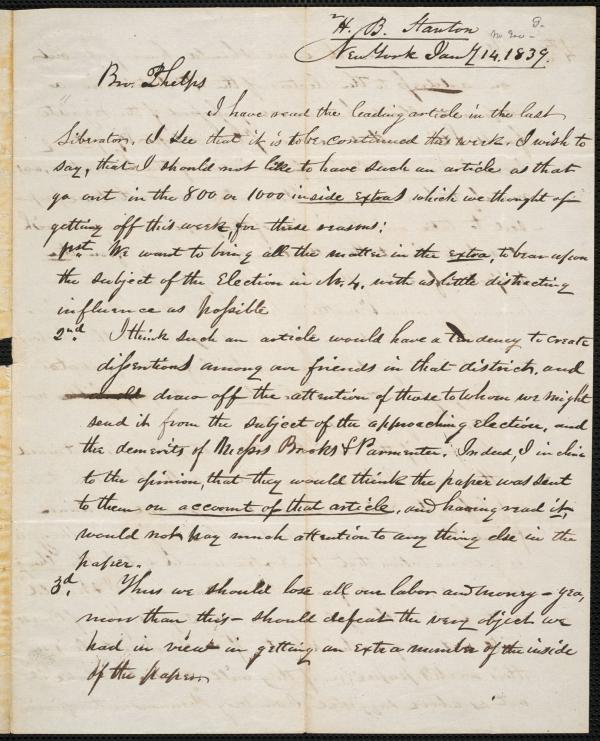 H. B. Stanton
New York Jany 14. 1839.
Bro. Phelps
I have read the leading article in the last
Liberator. I see that it is to be continued this week. I wish to
say, that I should not like to have such an article as that
go out in the 800 or 1000 inside extras which we thought of
getting off this week for these reasons:
1st. We want to bring all the matter in the extra, to bear upon
the subject of the Election in No. 4, with as little distracting
influence as possible
2nd. I think such an article would have a tendency to create
dissentions among our friends in that district, and
draw off the attention of those to whom we might
send it from the subject of the approaching election, and
the demerits of Messrs Brooks & Parmenter. Indeed, I incline
to the opinion, that they would think the paper was sent
to them on account of that article, and having read it,
would not pay much attention to any thing else in the
paper.
3d. Thus we should lose all our labor and money – yea,
more than this – should defeat the very object we
had in view in getting an extra number of the inside
of the paper.